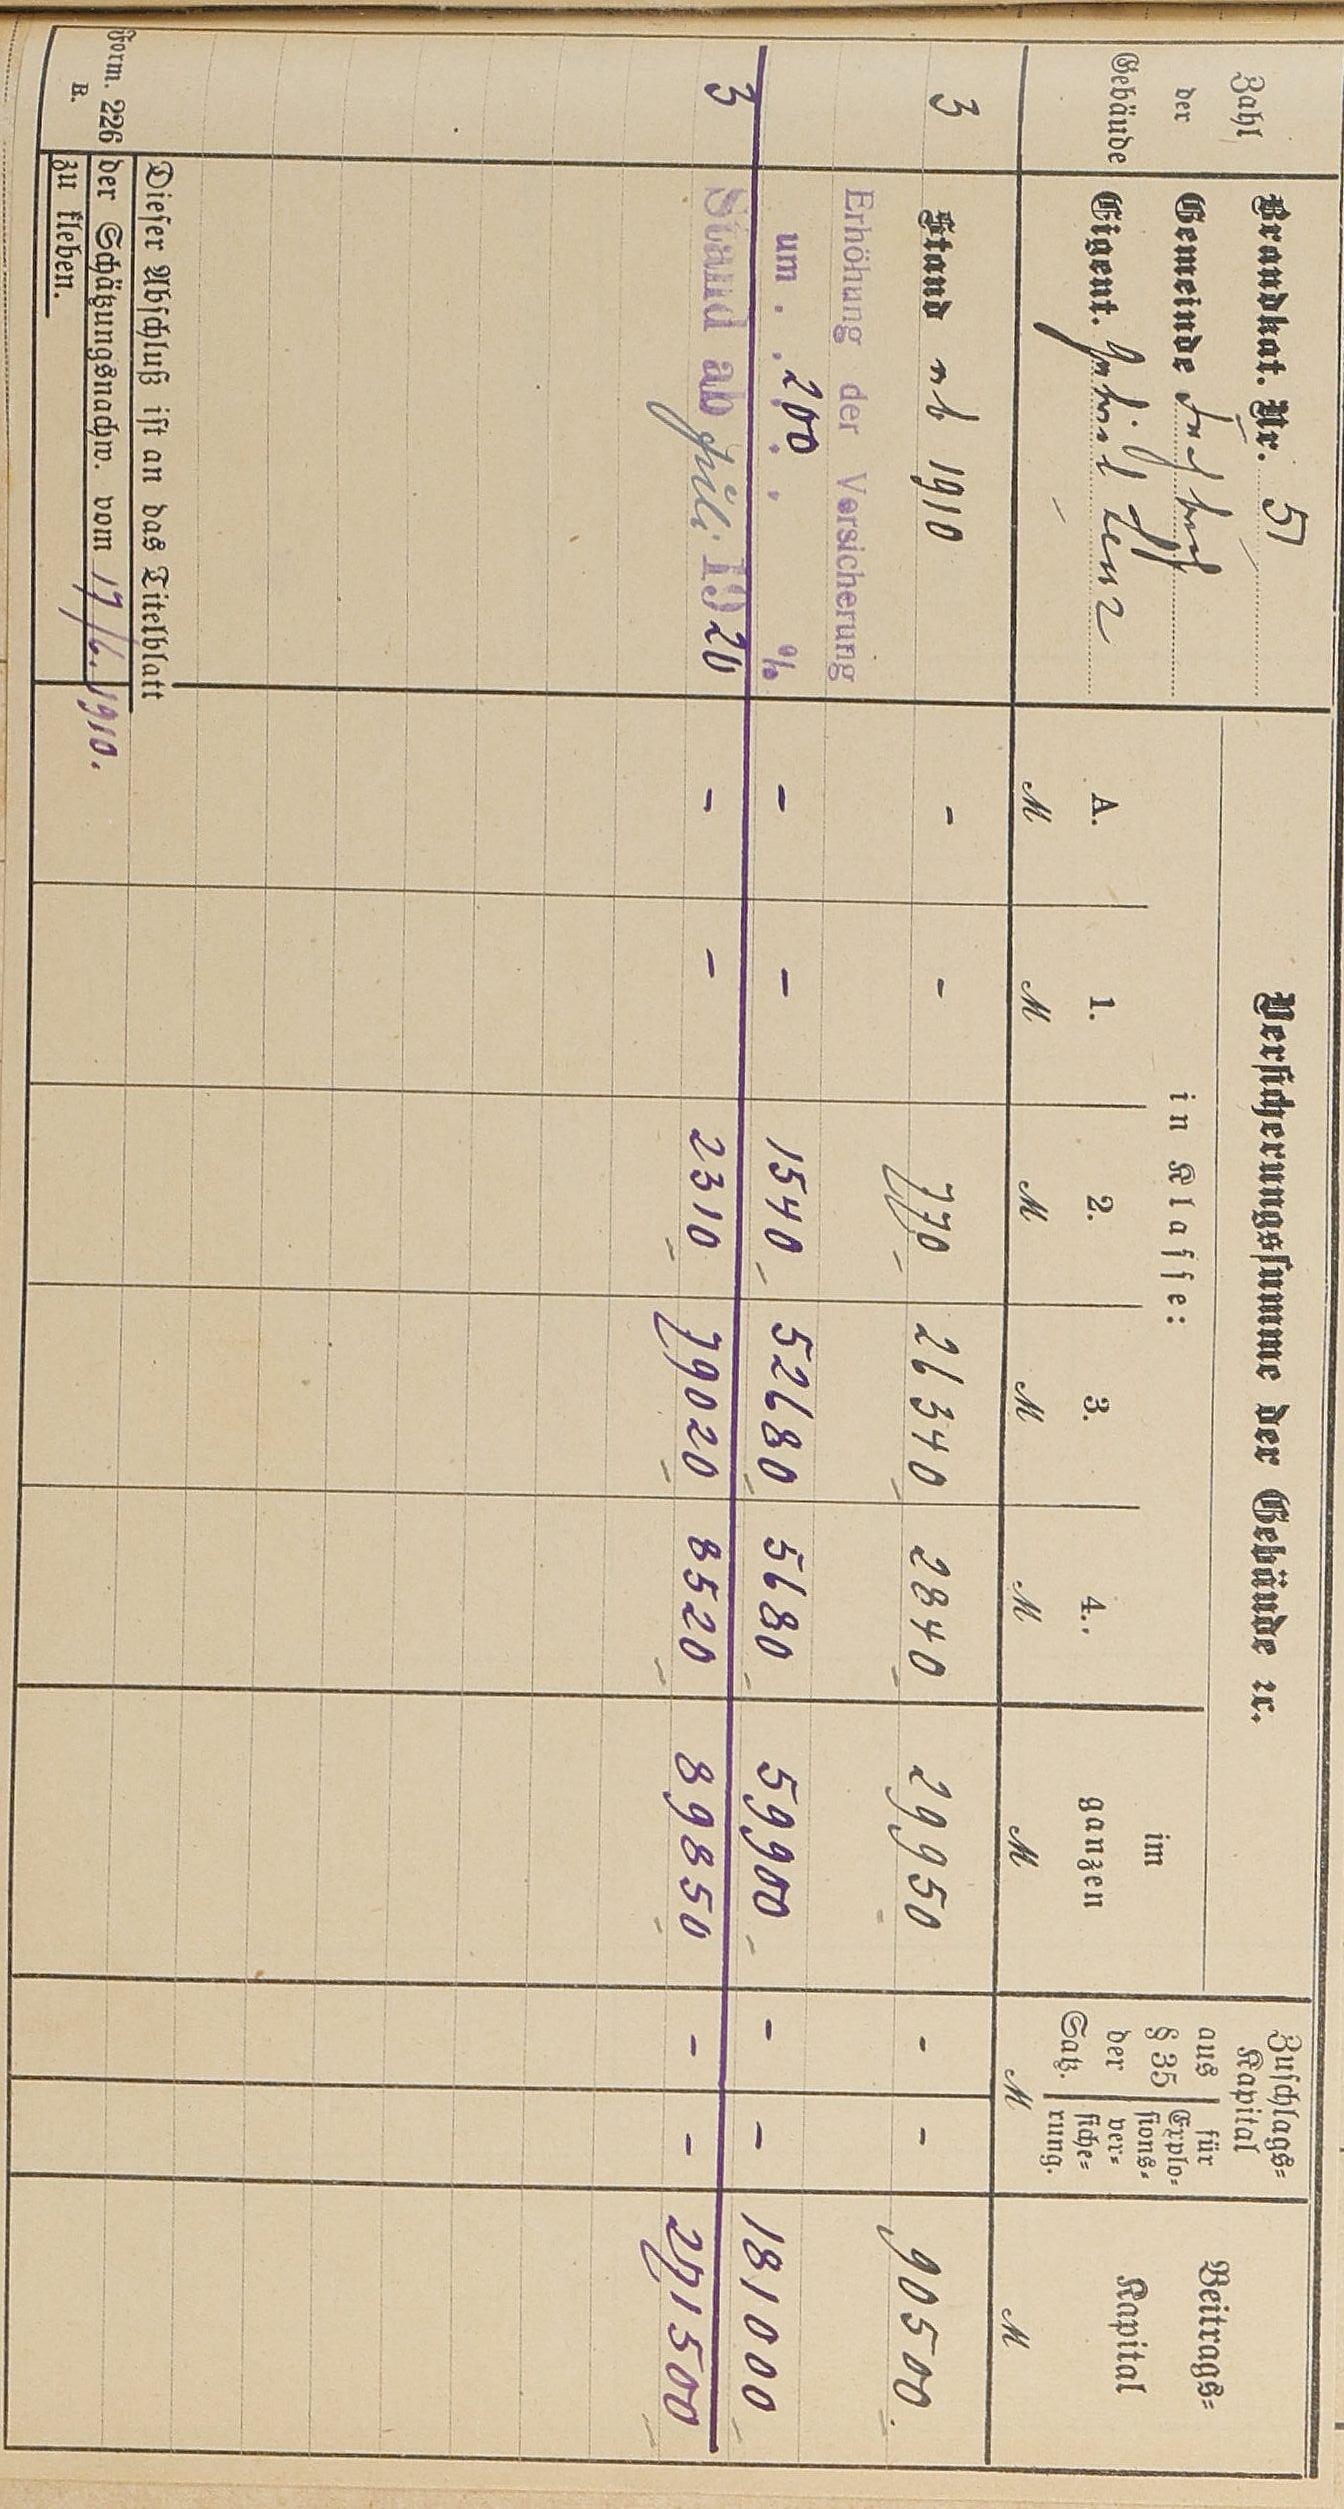 Zahl
der
Gebäude
Brandkat. Nr. 51
Gemeinde
Eigent.
Versicherungssumme der Gebäude ꝛc.
in Klasse:
A. 1. 2. 3. 4.
im
ganzen
Zuschlags-
Kapital
aus
§ 35
der
Satz.
für
Explo-
sions-
ver-
siche-
rung.
Beitrags-
Kapital
M M M M M M M M
3 Stand ab 1910 - - 770 26340 2840 29950 - - 90500
Erhöhung der Versicherung
um 200 % - - 1540 52680 5680 59900 - - 181000
3 Stand ab Juli 1920 - - 2310 79020 8520 89850 - - 271500
Dieser Abschluß ist an das Titelblatt
der Schätzungsnachw. vom 17/6. 1910.
zu kleben.
Form. 226
B.